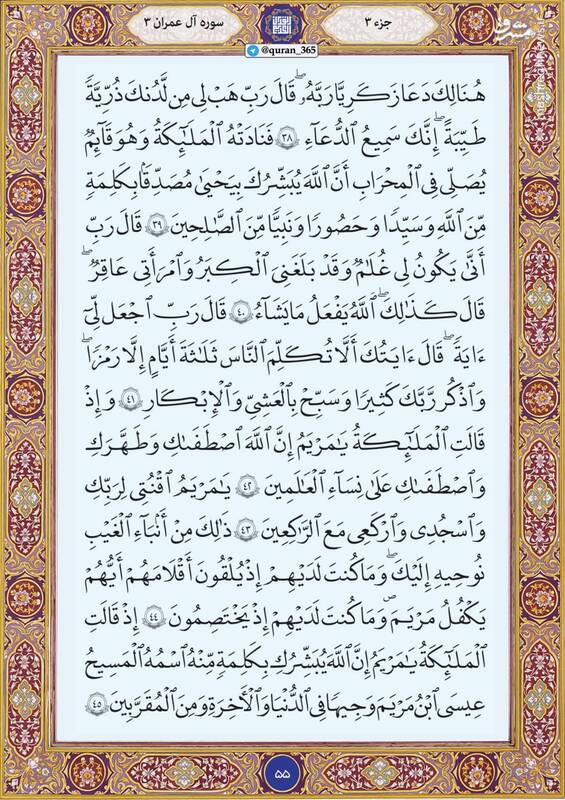 جزء ۳
سوره آل عمران ۳
@quran_365
مشرق
هُنَالِكَ دَعَا زَكَرِيَّا رَبَّهُۥ ۖ قَالَ رَبِّ هَبْ لِي مِن لَّدُنكَ ذُرِّيَّةً
طَيِّبَةً ۖ إِنَّكَ سَمِيعُ ٱلدُّعَآءِ ۳۸ فَنَادَتْهُ ٱلْمَلَٰٓئِكَةُ وَهُوَ قَآئِمٌ
يُصَلِّي فِي ٱلْمِحْرَابِ أَنَّ ٱللَّهَ يُبَشِّرُكَ بِيَحْيَىٰ مُصَدِّقًۢا بِكَلِمَةٍ
مِّنَ ٱللَّهِ وَسَيِّدًا وَحَصُورًا وَنَبِيًّا مِّنَ ٱلصَّٰلِحِينَ ۳۹ قَالَ رَبِّ
أَنَّىٰ يَكُونُ لِي غُلَٰمٌ وَقَدْ بَلَغَنِيَ ٱلْكِبَرُ وَٱمْرَأَتِي عَاقِرٌ ۖ
قَالَ كَذَٰلِكَ ٱللَّهُ يَفْعَلُ مَا يَشَآءُ ۴۰ قَالَ رَبِّ ٱجْعَل لِّيٓ
ءَايَةً ۖ قَالَ ءَايَتُكَ أَلَّا تُكَلِّمَ ٱلنَّاسَ ثَلَٰثَةَ أَيَّامٍ إِلَّا رَمْزًا ۗ
وَٱذْكُر رَّبَّكَ كَثِيرًا وَسَبِّحْ بِٱلْعَشِيِّ وَٱلْإِبْكَٰرِ ۴۱ وَإِذْ
قَالَتِ ٱلْمَلَٰٓئِكَةُ يَٰمَرْيَمُ إِنَّ ٱللَّهَ ٱصْطَفَىٰكِ وَطَهَّرَكِ
وَٱصْطَفَىٰكِ عَلَىٰ نِسَآءِ ٱلْعَٰلَمِينَ ۴۲ يَٰمَرْيَمُ ٱقْنُتِي لِرَبِّكِ
وَٱسْجُدِي وَٱرْكَعِي مَعَ ٱلرَّٰكِعِينَ ۴۳ ذَٰلِكَ مِنْ أَنۢبَآءِ ٱلْغَيْبِ
نُوحِيهِ إِلَيْكَ ۚ وَمَا كُنتَ لَدَيْهِمْ إِذْ يُلْقُونَ أَقْلَٰمَهُمْ أَيُّهُمْ
يَكْفُلُ مَرْيَمَ وَمَا كُنتَ لَدَيْهِمْ إِذْ يَخْتَصِمُونَ ۴۴ إِذْ قَالَتِ
ٱلْمَلَٰٓئِكَةُ يَٰمَرْيَمُ إِنَّ ٱللَّهَ يُبَشِّرُكِ بِكَلِمَةٍ مِّنْهُ ٱسْمُهُ ٱلْمَسِيحُ
عِيسَى ٱبْنُ مَرْيَمَ وَجِيهًا فِي ٱلدُّنْيَا وَٱلْأٓخِرَةِ وَمِنَ ٱلْمُقَرَّبِينَ ۴۵
۵۵